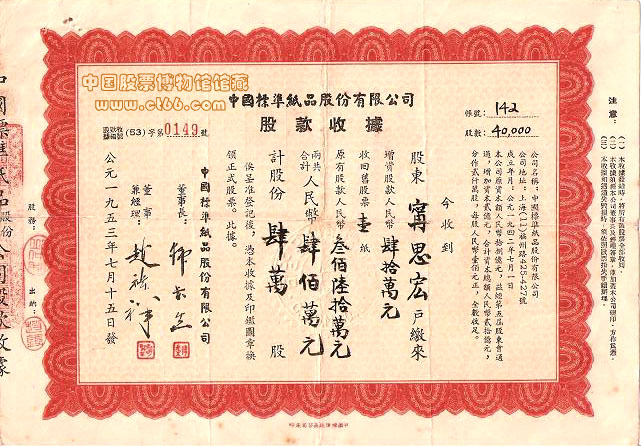 中国股票博物馆馆藏
www.cl66.com
中國標準紙品股份有限公司
股款收據
股款收據編號 (53)字第0149號
帳號: 142
股數: 40,000
公司名稱:中國標準紙品股份有限公司
公司地址:上海(11)福州路425-427號
成立年月:公元一九四二年七月一日
本公司原資本額人民幣拾捌億元,茲經第五屆股東會通
過,增加資本貳億元,合計資本總額人民幣貳拾億元,
分作貳仟萬股,每股人民幣壹佰元正,全數收足。
今收到
股東 甯思宏 戶繳來
增資股款人民幣肆拾萬元
收回舊股票壹紙
原有股款人民幣叁佰陸拾萬元
兩共合計人民幣肆佰萬元
計股份肆萬股
俟呈准登記後,憑本收據及印鑑圖章換
領正式股票。此據。
中國標準紙品股份有限公司
董事長:
董事兼經理:
公元一九五三年七月十五日發
股務:
出納:
中國標準紙品股份公司股款收據
注意: